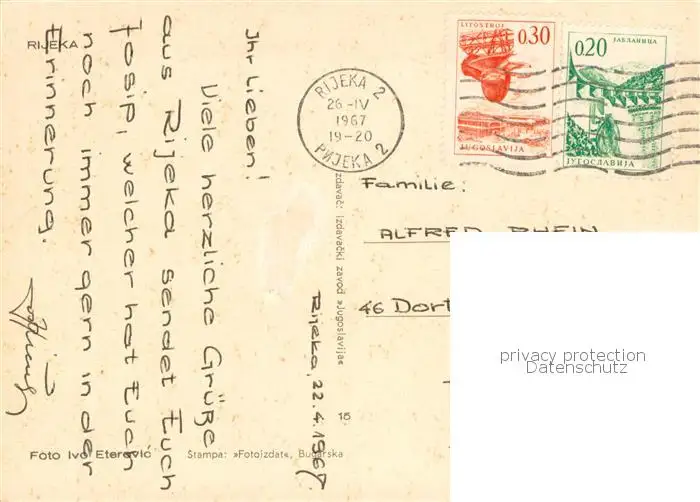 RIJEKA
Ihr Lieben!
Viele herzliche Grüße
aus Rijeka sendet Euch
Josip, welcher hat Euch
noch immer gern in der
Erinnerung.
Rijeka, 22.4.1967
Foto Ivo Eterović
Štampa: »Fotoizdat«, Bugarska
Izdavač: Izdavački zavod »Jugoslavija«
15
RIJEKA 2
26-IV
1967
19-20
РИЈЕКА 2
LITOSTROJ
0,30
JUGOSLAVIJA
ЈАБЛАНИЦА
0,20
ЈУГОСЛАВИЈА
Familie:
ALFRED RHEIN
46 Dort
privacy protection
Datenschutz